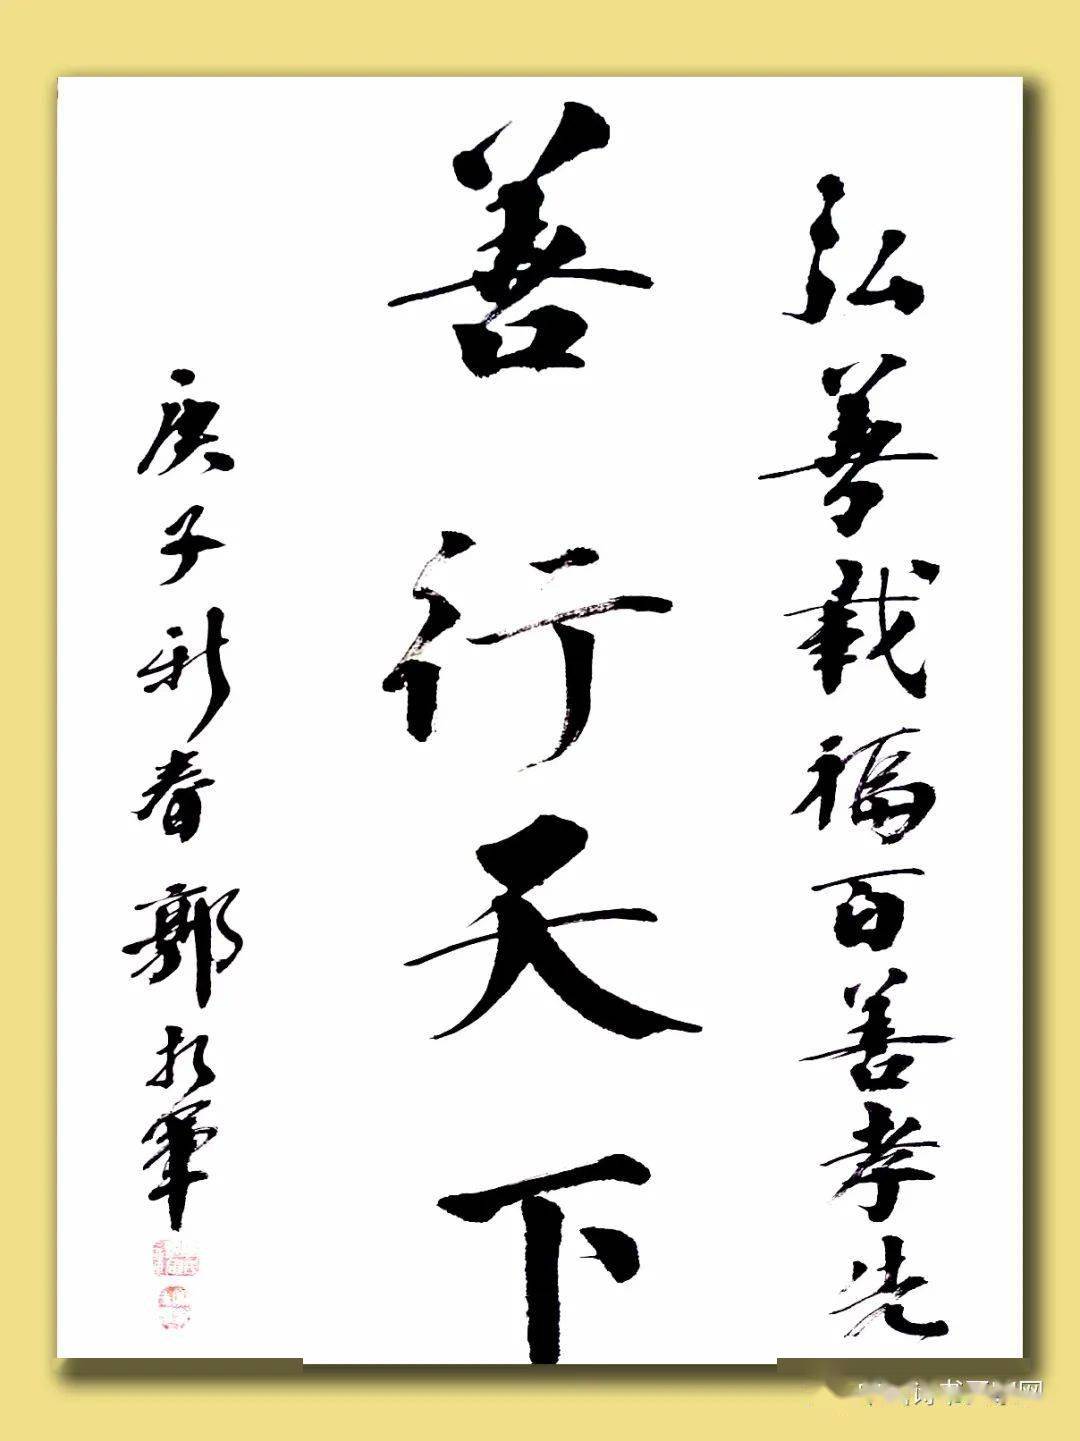 弘善載福百善孝先
善行天下
庚子新春 郭軍